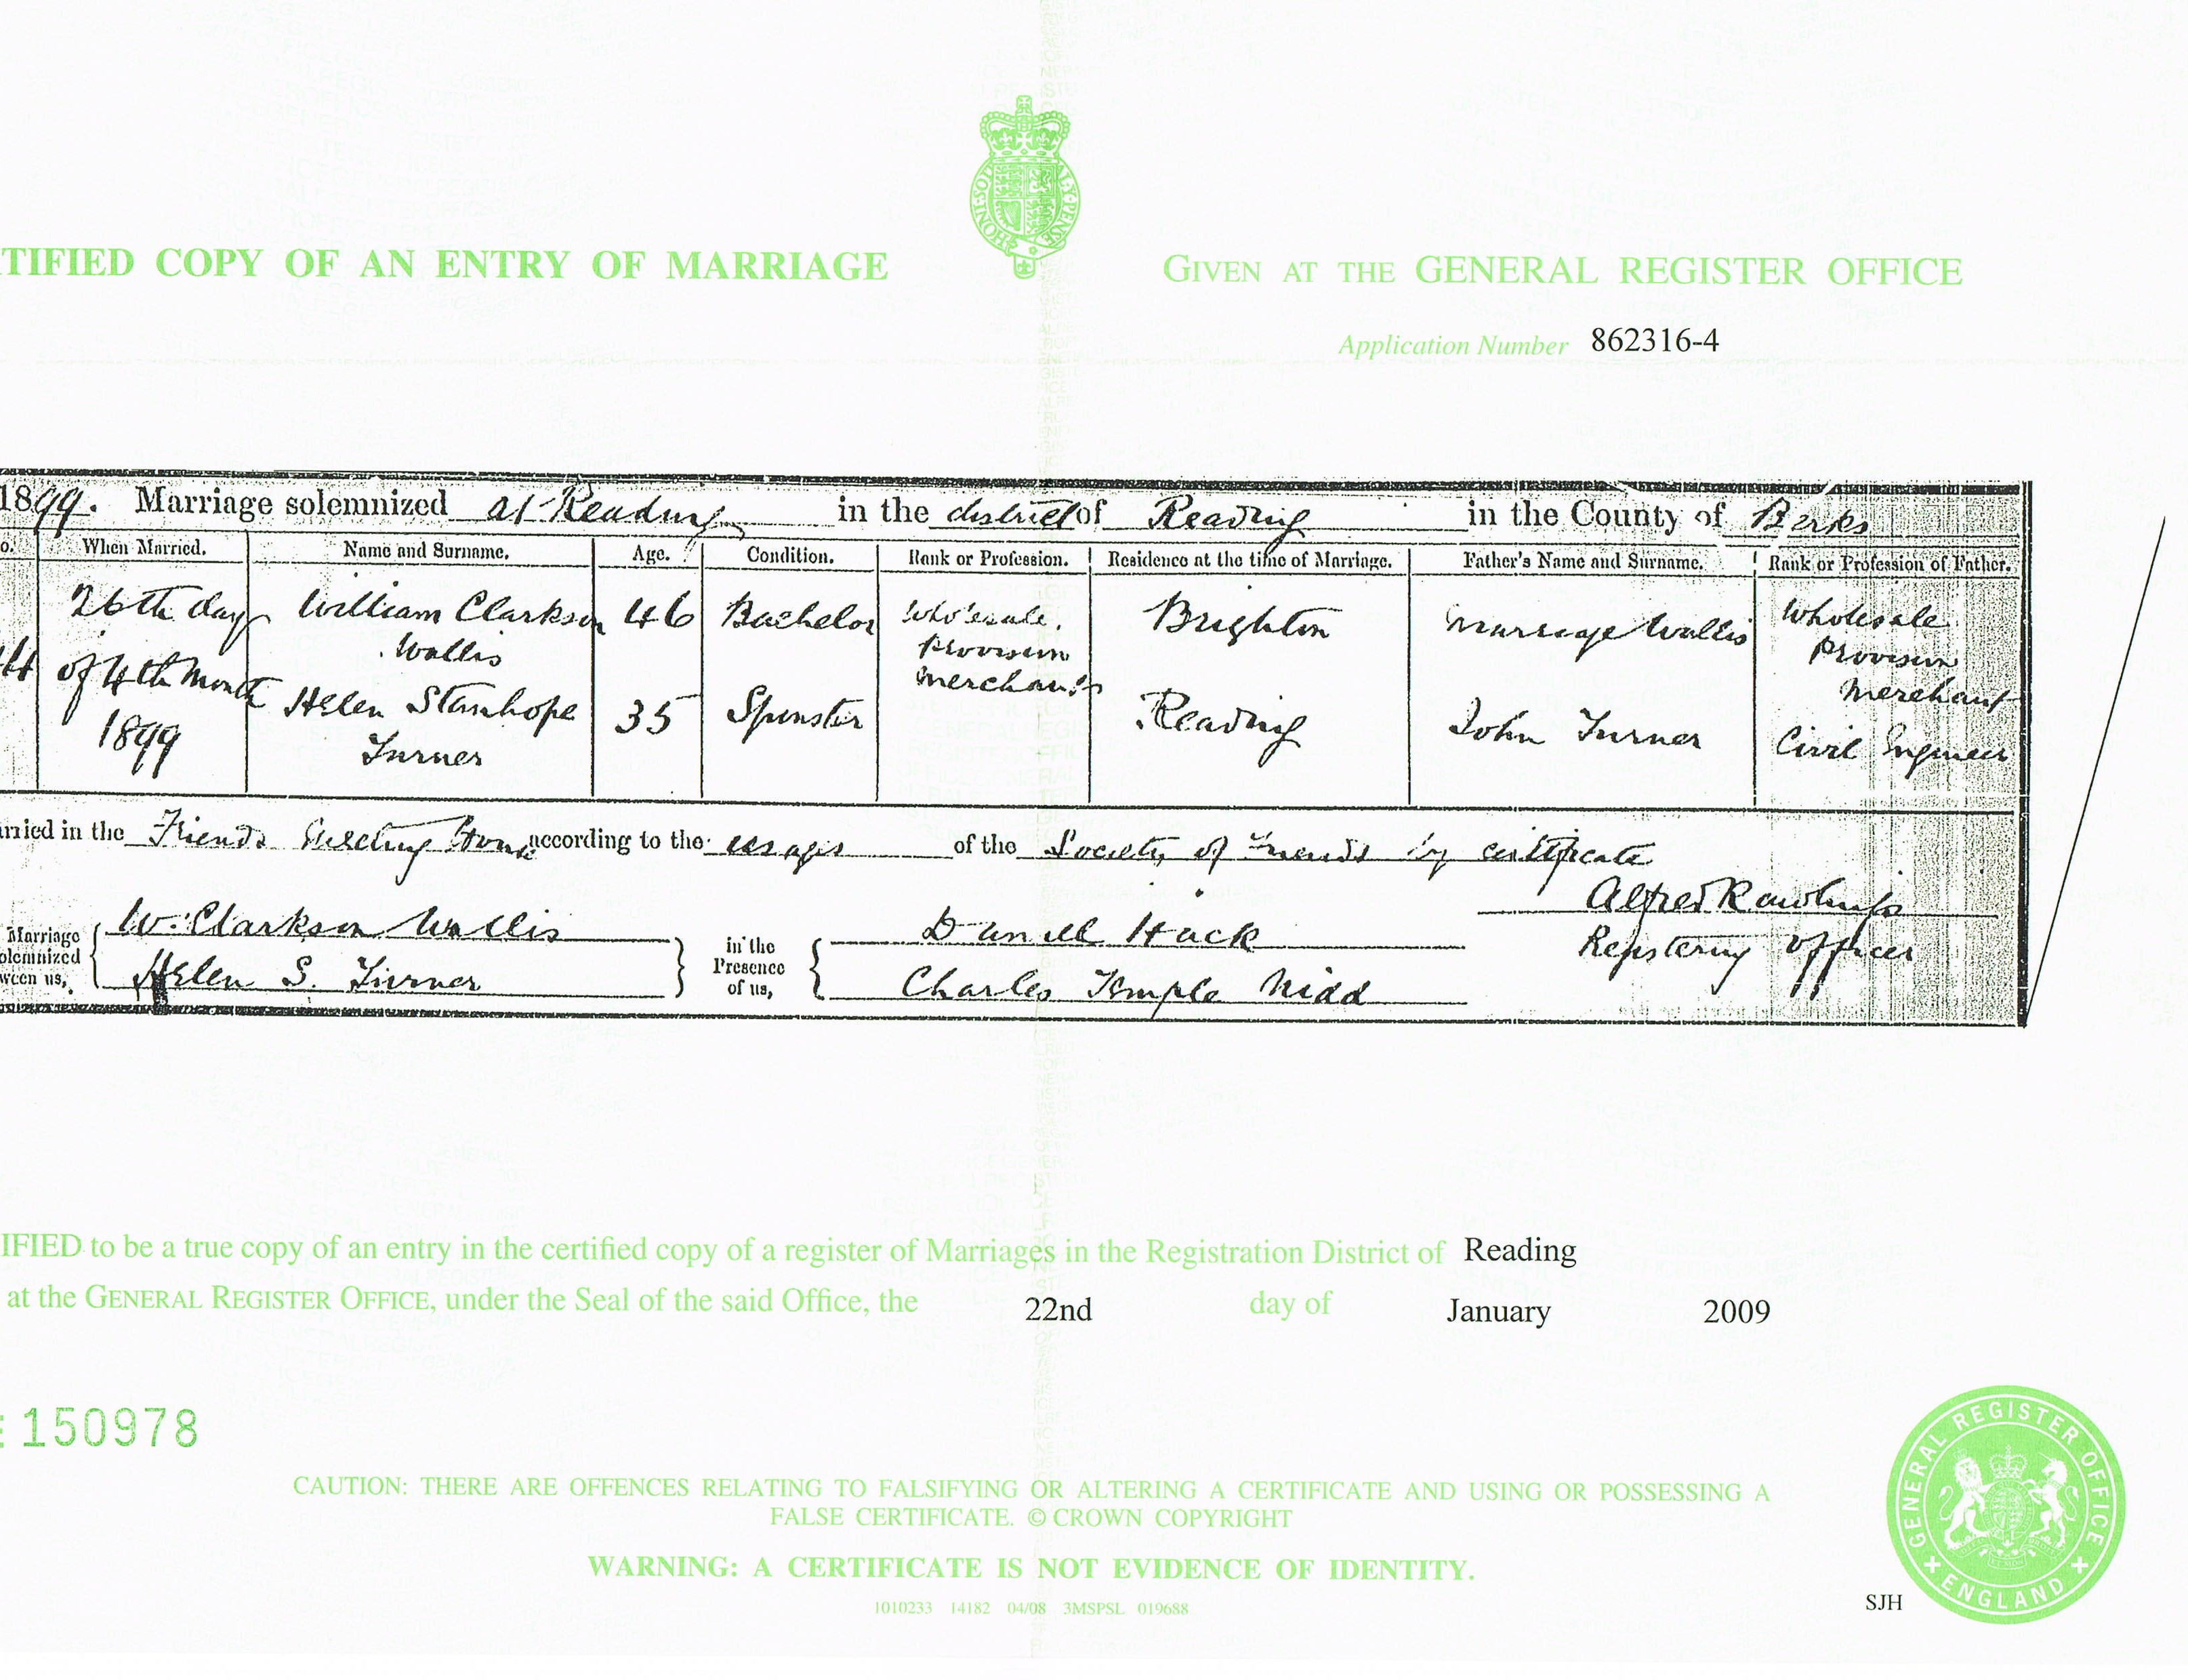 HONI·SOIT QUI MAL·Y·PENSE
TIFIED COPY OF AN ENTRY OF MARRIAGE
GIVEN AT THE GENERAL REGISTER OFFICE
Application Number 862316-4
1899. Marriage solemnized at Reading in the district of Reading in the County of Berks
o. When Married. Name and Surname. Age. Condition. Rank or Profession. Residence at the time of Marriage. Father's Name and Surname. Rank or Profession of Father.
26th day William Clarkson 46 Bachelor Wholesale Brighton Marriage Wallis Wholesale
Wallis Provision Provision
of 4th Month Merchant Merchant
Helen Stanhope 35 Spinster Reading John Turner Civil Engineer
1899 Turner
rried in the Friends Meeting House according to the usages of the Society of Friends by certificate
Marriage
olemnized
ween us,
W. Clarkson Wallis
Helen S. Turner
in the
Presence
of us,
Daniell Hack
Charles Temple Nidd
Alfred Rawlings
Registering Officer
IFIED to be a true copy of an entry in the certified copy of a register of Marriages in the Registration District of Reading
at the GENERAL REGISTER OFFICE, under the Seal of the said Office, the 22nd day of January 2009
150978
CAUTION: THERE ARE OFFENCES RELATING TO FALSIFYING OR ALTERING A CERTIFICATE AND USING OR POSSESSING A
FALSE CERTIFICATE. © CROWN COPYRIGHT
WARNING: A CERTIFICATE IS NOT EVIDENCE OF IDENTITY.
1010233 14182 04/08 3MSPSL 019688
SJH
GENERAL REGISTER OFFICE
ENGLAND